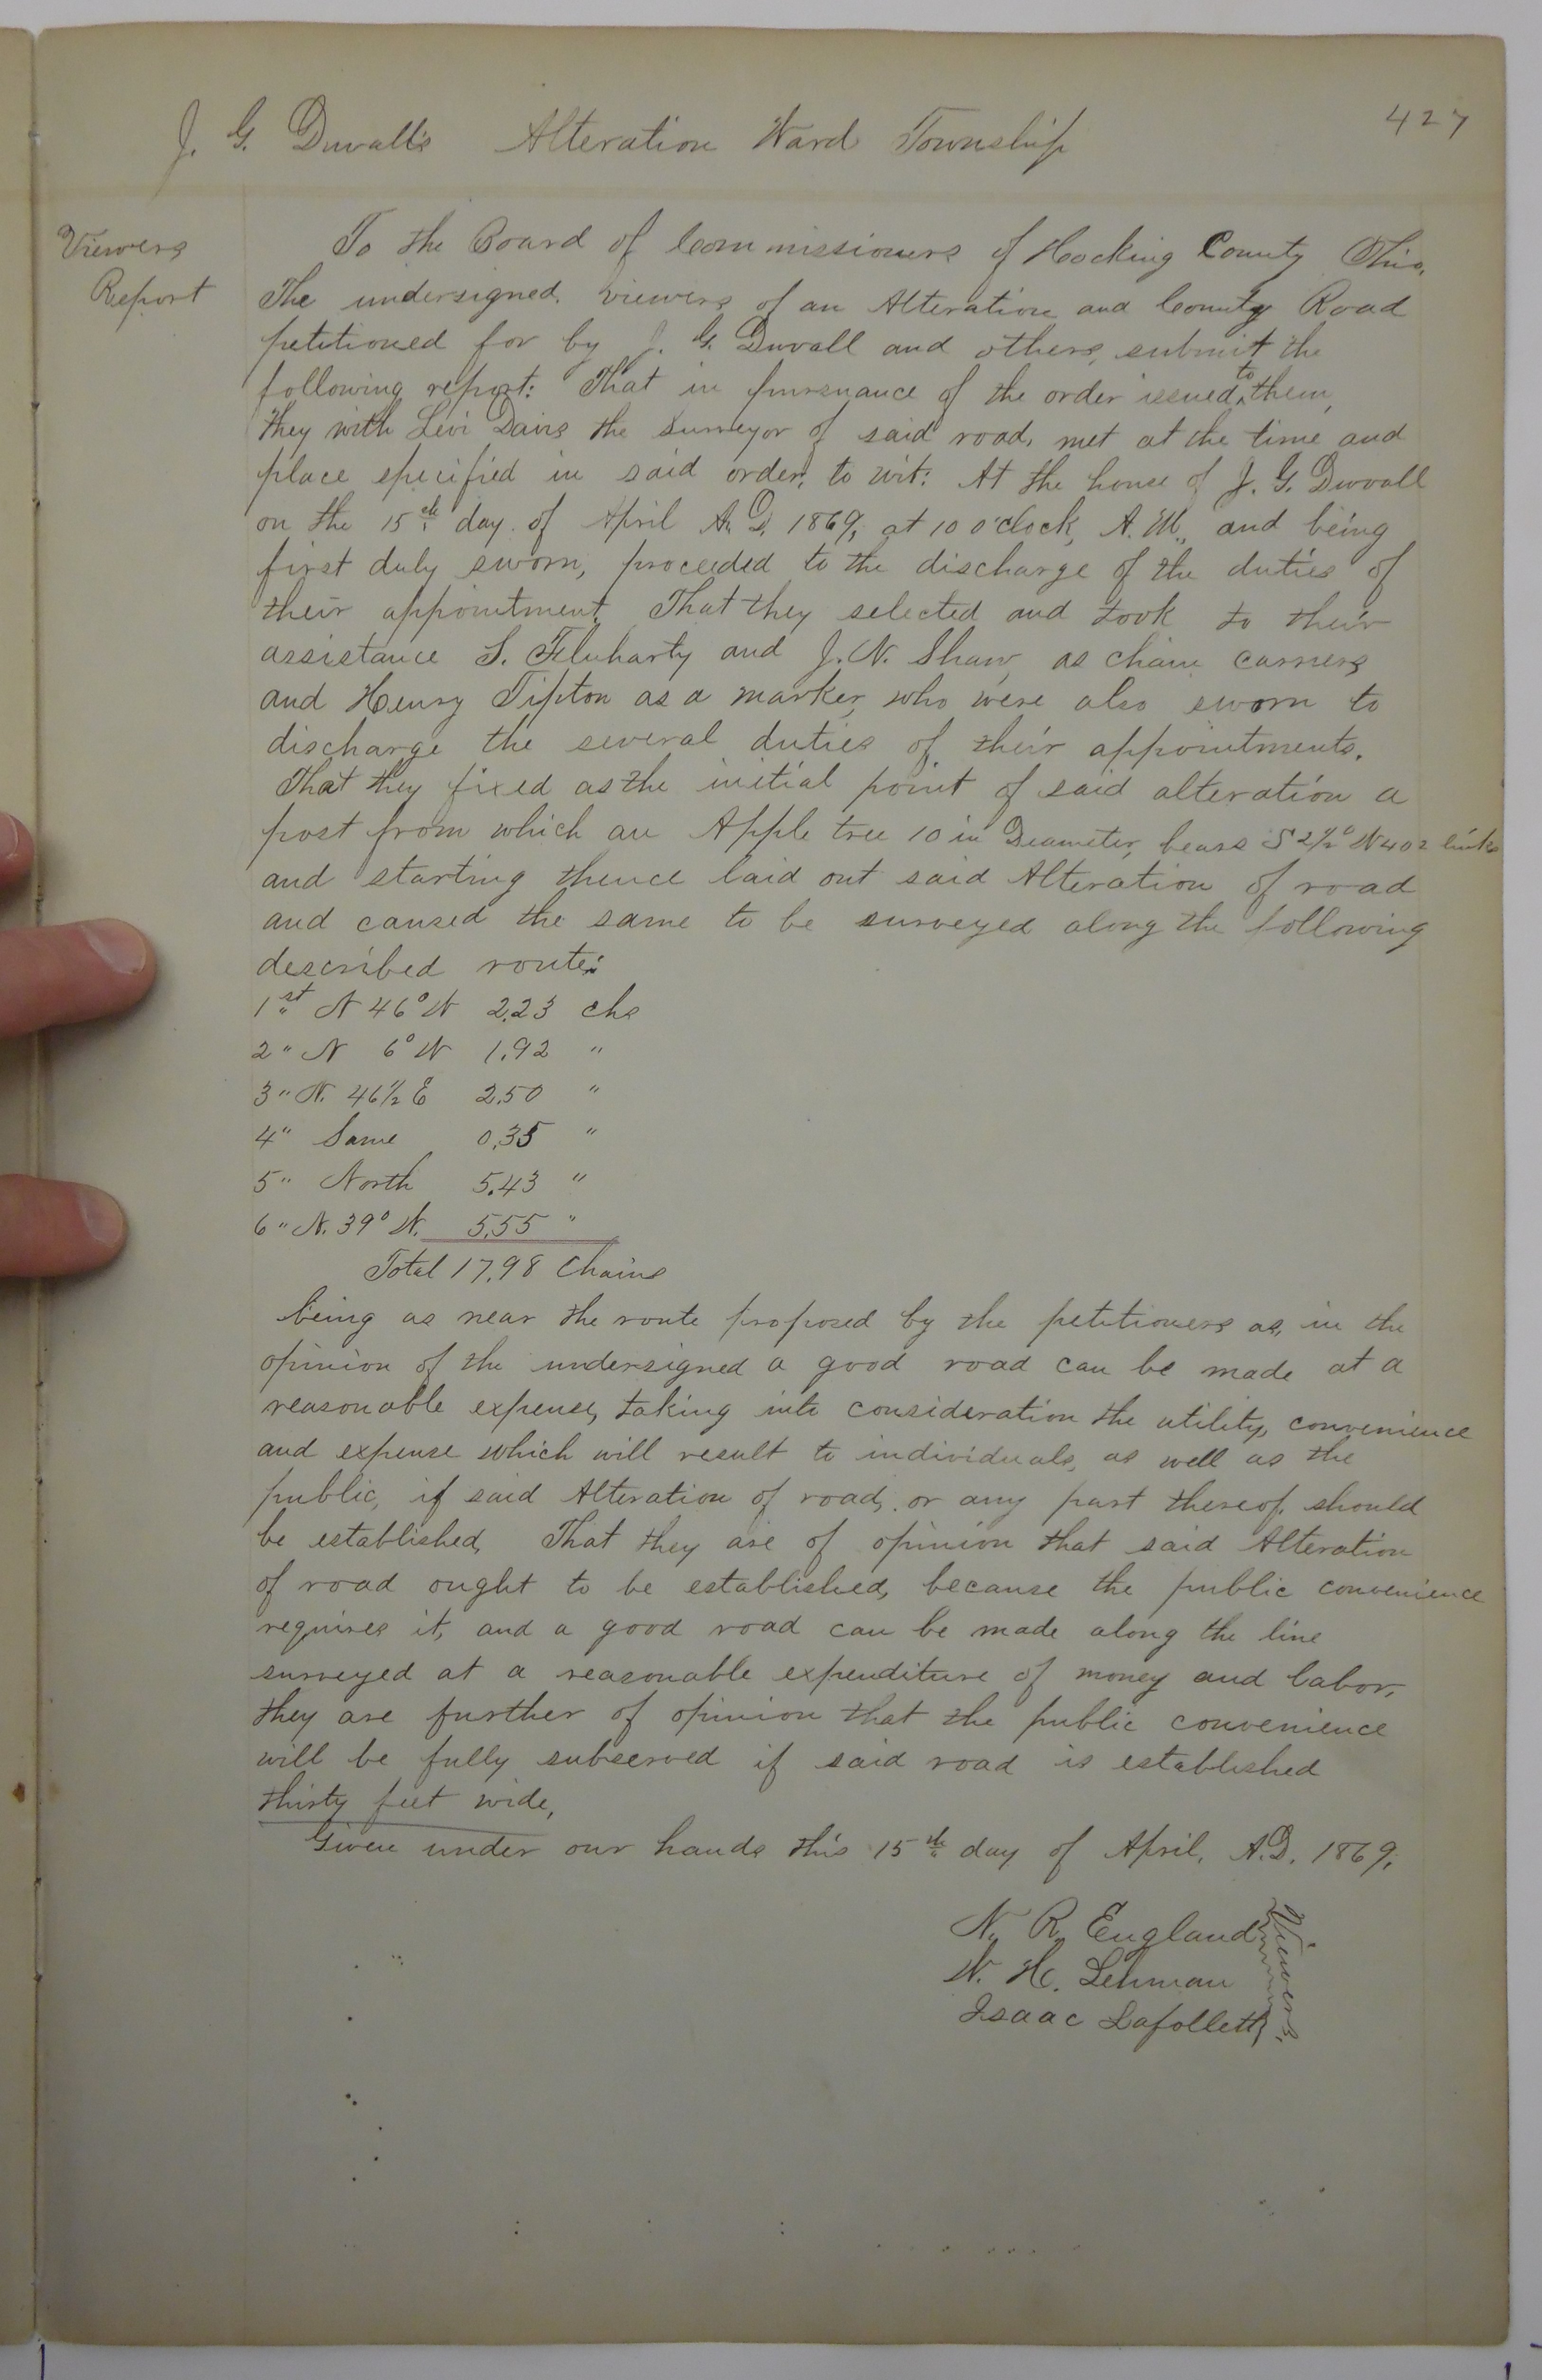 427
J. G. Duvall's Alteration Ward Township
Viewers
Report
To the Board of Commissioners of Hocking County Ohio,
The undersigned, viewers of an Alteration and County Road
petitioned for by J. G. Duvall and others, submit the
following report: That in pursuance of the order issued to them,
they with Levi Davis the surveyor of said road, met at the time and
place specified in said order, to wit: At the house of J. G. Duvall
on the 15th day of April A. D. 1869, at 10 o'clock, A. M., and being
first duly sworn, proceeded to the discharge of the duties of
their appointment. That they selected and took to their
assistance S. Fluharty and J. N. Shaw, as chain carriers
and Henry Tipton as a marker, who were also sworn to
discharge the several duties of their appointments.
That they fixed as the initial point of said alteration a
post from which an Apple tree 10 in Diameter, bears S 2½° W 402 links
and starting thence laid out said Alteration of road
and caused the same to be surveyed along the following
described route:
1st N 46° W 2.23 chs
2 " N 6° W 1.92 "
3 " N. 46½ E 2.50 "
4 " Same 0.35 "
5 " North 5.43 "
6 " N. 39° W. 5.55 "
Total 17.98 Chains
being as near the route proposed by the petitioners as, in the
opinion of the undersigned a good road can be made at a
reasonable expense, taking into consideration the utility, convenience
and expense which will result to individuals, as well as the
public, if said Alteration of road, or any part thereof, should
be established, That they are of opinion that said Alteration
of road ought to be established, because the public convenience
requires it, and a good road can be made along the line
surveyed at a reasonable expenditure of money and labor,
they are further of opinion that the public convenience
will be fully subserved if said road is established
thirty feet wide,
Given under our hands this 15th day of April, A.D. 1869,
N. R. England
W. H. Lehman
Isaac Lafollett
Viewers.